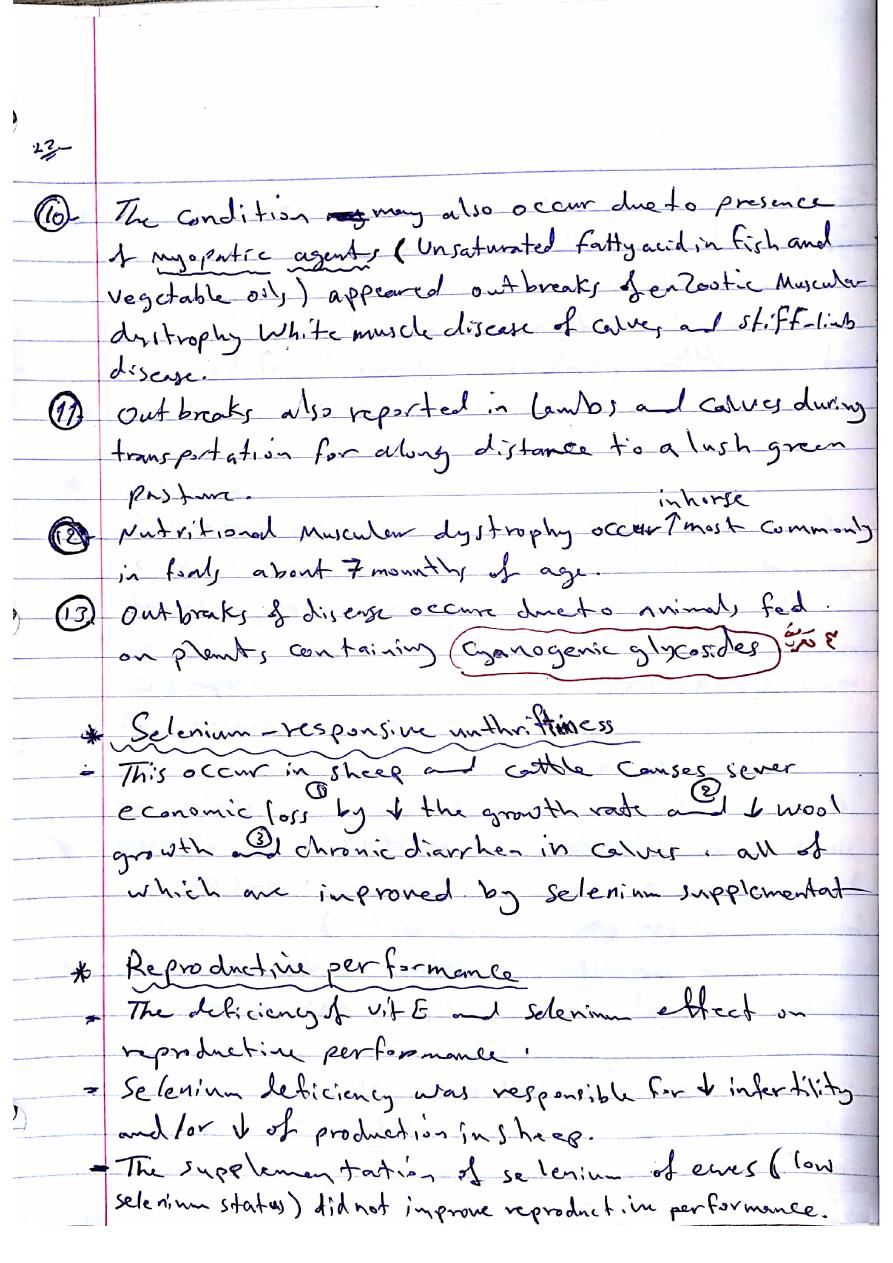 22-
10- The condition may also occur due to presence
of myopatic agents (Unsaturated fatty acid in fish and
vegetable oils) appeared outbreaks of enzootic Muscular
dystrophy White muscle disease of calves and stiff-limb
disease.
11- Out breaks also reported in lambs and calves during
transportation for along distance to a lush green
pasture.
in horse
12- Nutritional Muscular dystrophy occur ↑ most commonly
in foals about 7 mounths of age.
13- Outbreaks of disease occure due to animals fed.
on plants containing Cyanogenic glycosides
* Selenium-responsive unthriftiness
- This occur in sheep and cattle causes sever
economic loss ① by ↓ the growth rate and ② ↓ wool
growth and ③ chronic diarrhea in calves. all of
which are improved by selenium supplementat
* Reproductive performance
- The deficiency of vit E and selenium effect on
reproductive performance.
- Selenium deficiency was responsible for ↓ infertility
and/or ↓ of production in sheep.
- The supplementation of selenium of ewes (low
selenium status) did not improve reproductive performance.